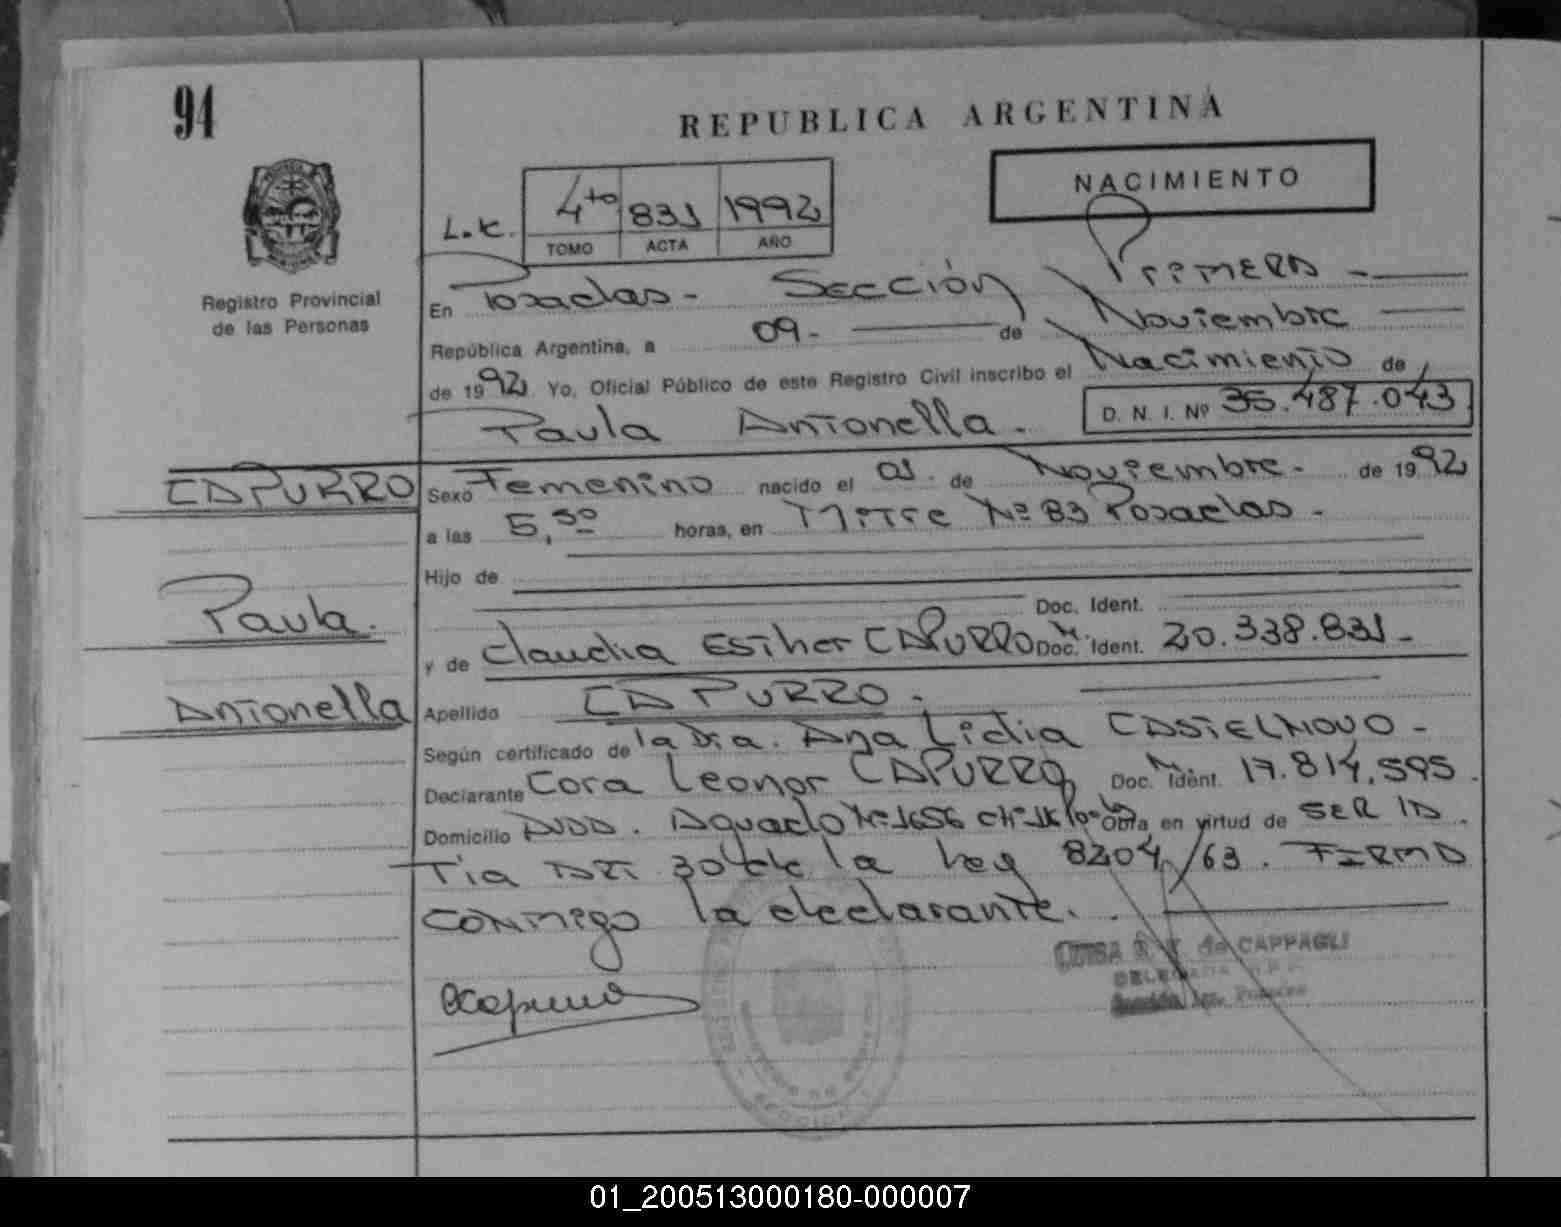 94
REPUBLICA ARGENTINA
NACIMIENTO
4to 831 1992
TOMO ACTA AÑO
Registro Provincial
de las Personas
En Posadas - Sección Primera
República Argentina, a 09.- de Noviembre
de 1992. Yo, Oficial Público de este Registro Civil inscribo el Nacimiento de
Paula Antonella.
D. N. I. Nº 36.487.043
CAPURRO
Sexo Femenino nacido el 01. de Noviembre.- de 1992
a las 5,30 horas, en Mitre Nº 83 Posadas.-
Hijo de
Doc. Ident.
Paula.
y de Claudia Esther CAPURRO Doc. Ident. 20.338.831.-
Antonella
Apellido CAPURRO.
Según certificado de la Dra. Ana Lidia CASTELNOVO -
Declarante Cora Leonor CAPURRO Doc. Ident. 17.814.595.
Domicilio Avda. Aguado Nº 1656 Obra en virtud de SER LA
Tía ART. 30 de la Ley 8204/63. FIRMA
CONMIGO la declarante.
de CAPPAGLI
01_200513000180-000007